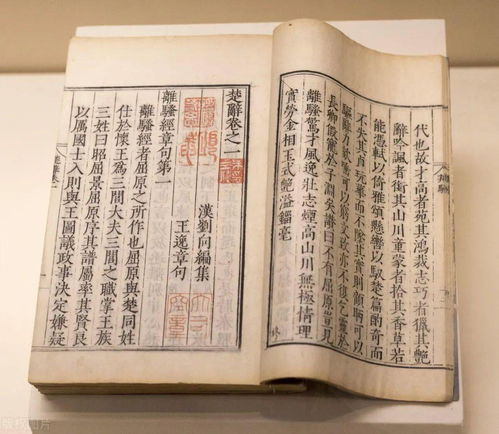 代也故才高者苑其鴻裁志巧者獵其艷
辭吟諷者銜其山川童蒙者拾其香草若
能憑軾以倚雅頌懸轡以馭楚篇酌奇而
不失其貞玩華而不墜其實則顧盻可以
驅辭力欬唾可以窮文致亦不復乞靈於
長卿假寵於子淵矣讚曰不有屈原豈見
離騷驚才風逸壯志煙高山川無極情理
實勞金相玉式艷溢錙毫
楚辭卷之一
漢劉向編集
王逸章句
離騷經章句第一
離騷經者屈原之所作也屈原與楚同姓
仕於懷王爲三閭大夫三閭之職掌王族
三姓曰昭屈景屈原序其譜屬率其賢良
以厲國士入則與王圖議政事決定嫌疑
版权图片